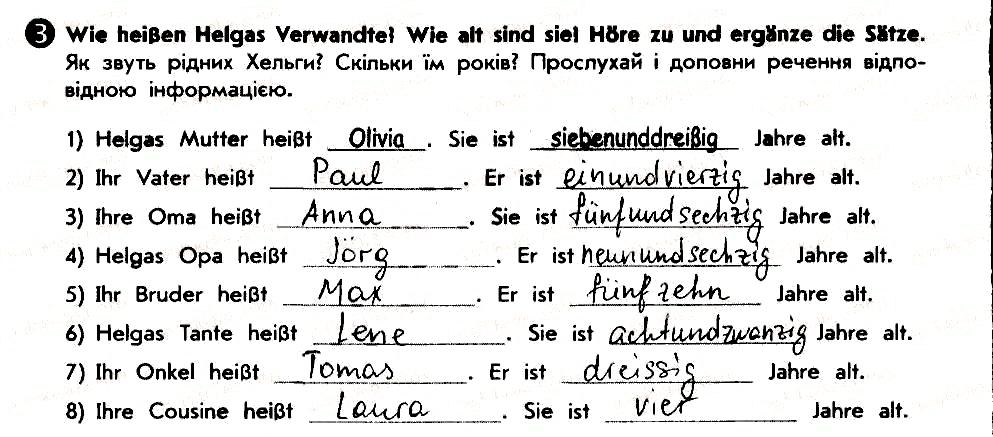 3 Wie heißen Helgas Verwandte? Wie alt sind sie? Höre zu und ergänze die Sätze.
Як звуть рідних Хельги? Скільки їм років? Прослухай і доповни речення відпо-
відною інформацією.
1) Helgas Mutter heißt Olivia. Sie ist siebenunddreißig Jahre alt.
2) Ihr Vater heißt Paul. Er ist einundvierzig Jahre alt.
3) Ihre Oma heißt Anna. Sie ist fünfundsechzig Jahre alt.
4) Helgas Opa heißt Jörg. Er ist neunundsechzig Jahre alt.
5) Ihr Bruder heißt Max. Er ist fünfzehn Jahre alt.
6) Helgas Tante heißt Lene. Sie ist achtundzwanzig Jahre alt.
7) Ihr Onkel heißt Tomas. Er ist dreissig Jahre alt.
8) Ihre Cousine heißt Laura. Sie ist vier Jahre alt.